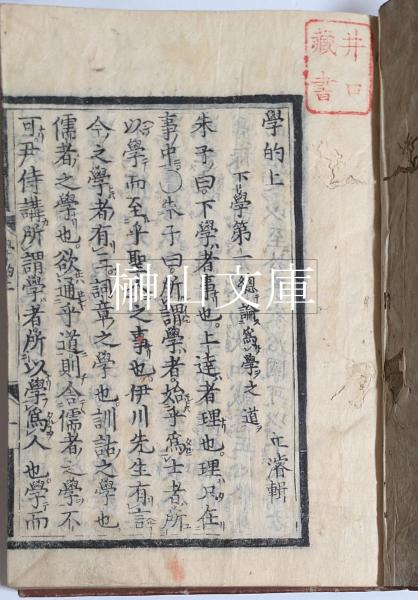 學的上
丘濬輯
下學第一 總論爲學之道
朱子曰下學者事也上達者理也理只在
事中〇朱子曰所謂學者始乎爲士者所
以學而至乎聖人之事也伊川先生有言
今之學者有三詞章之學也訓詁之學也
儒者之學也欲通乎道則舍儒者之學不
可尹侍講所謂學者所以學爲人也學而
井口藏書
榊山文庫